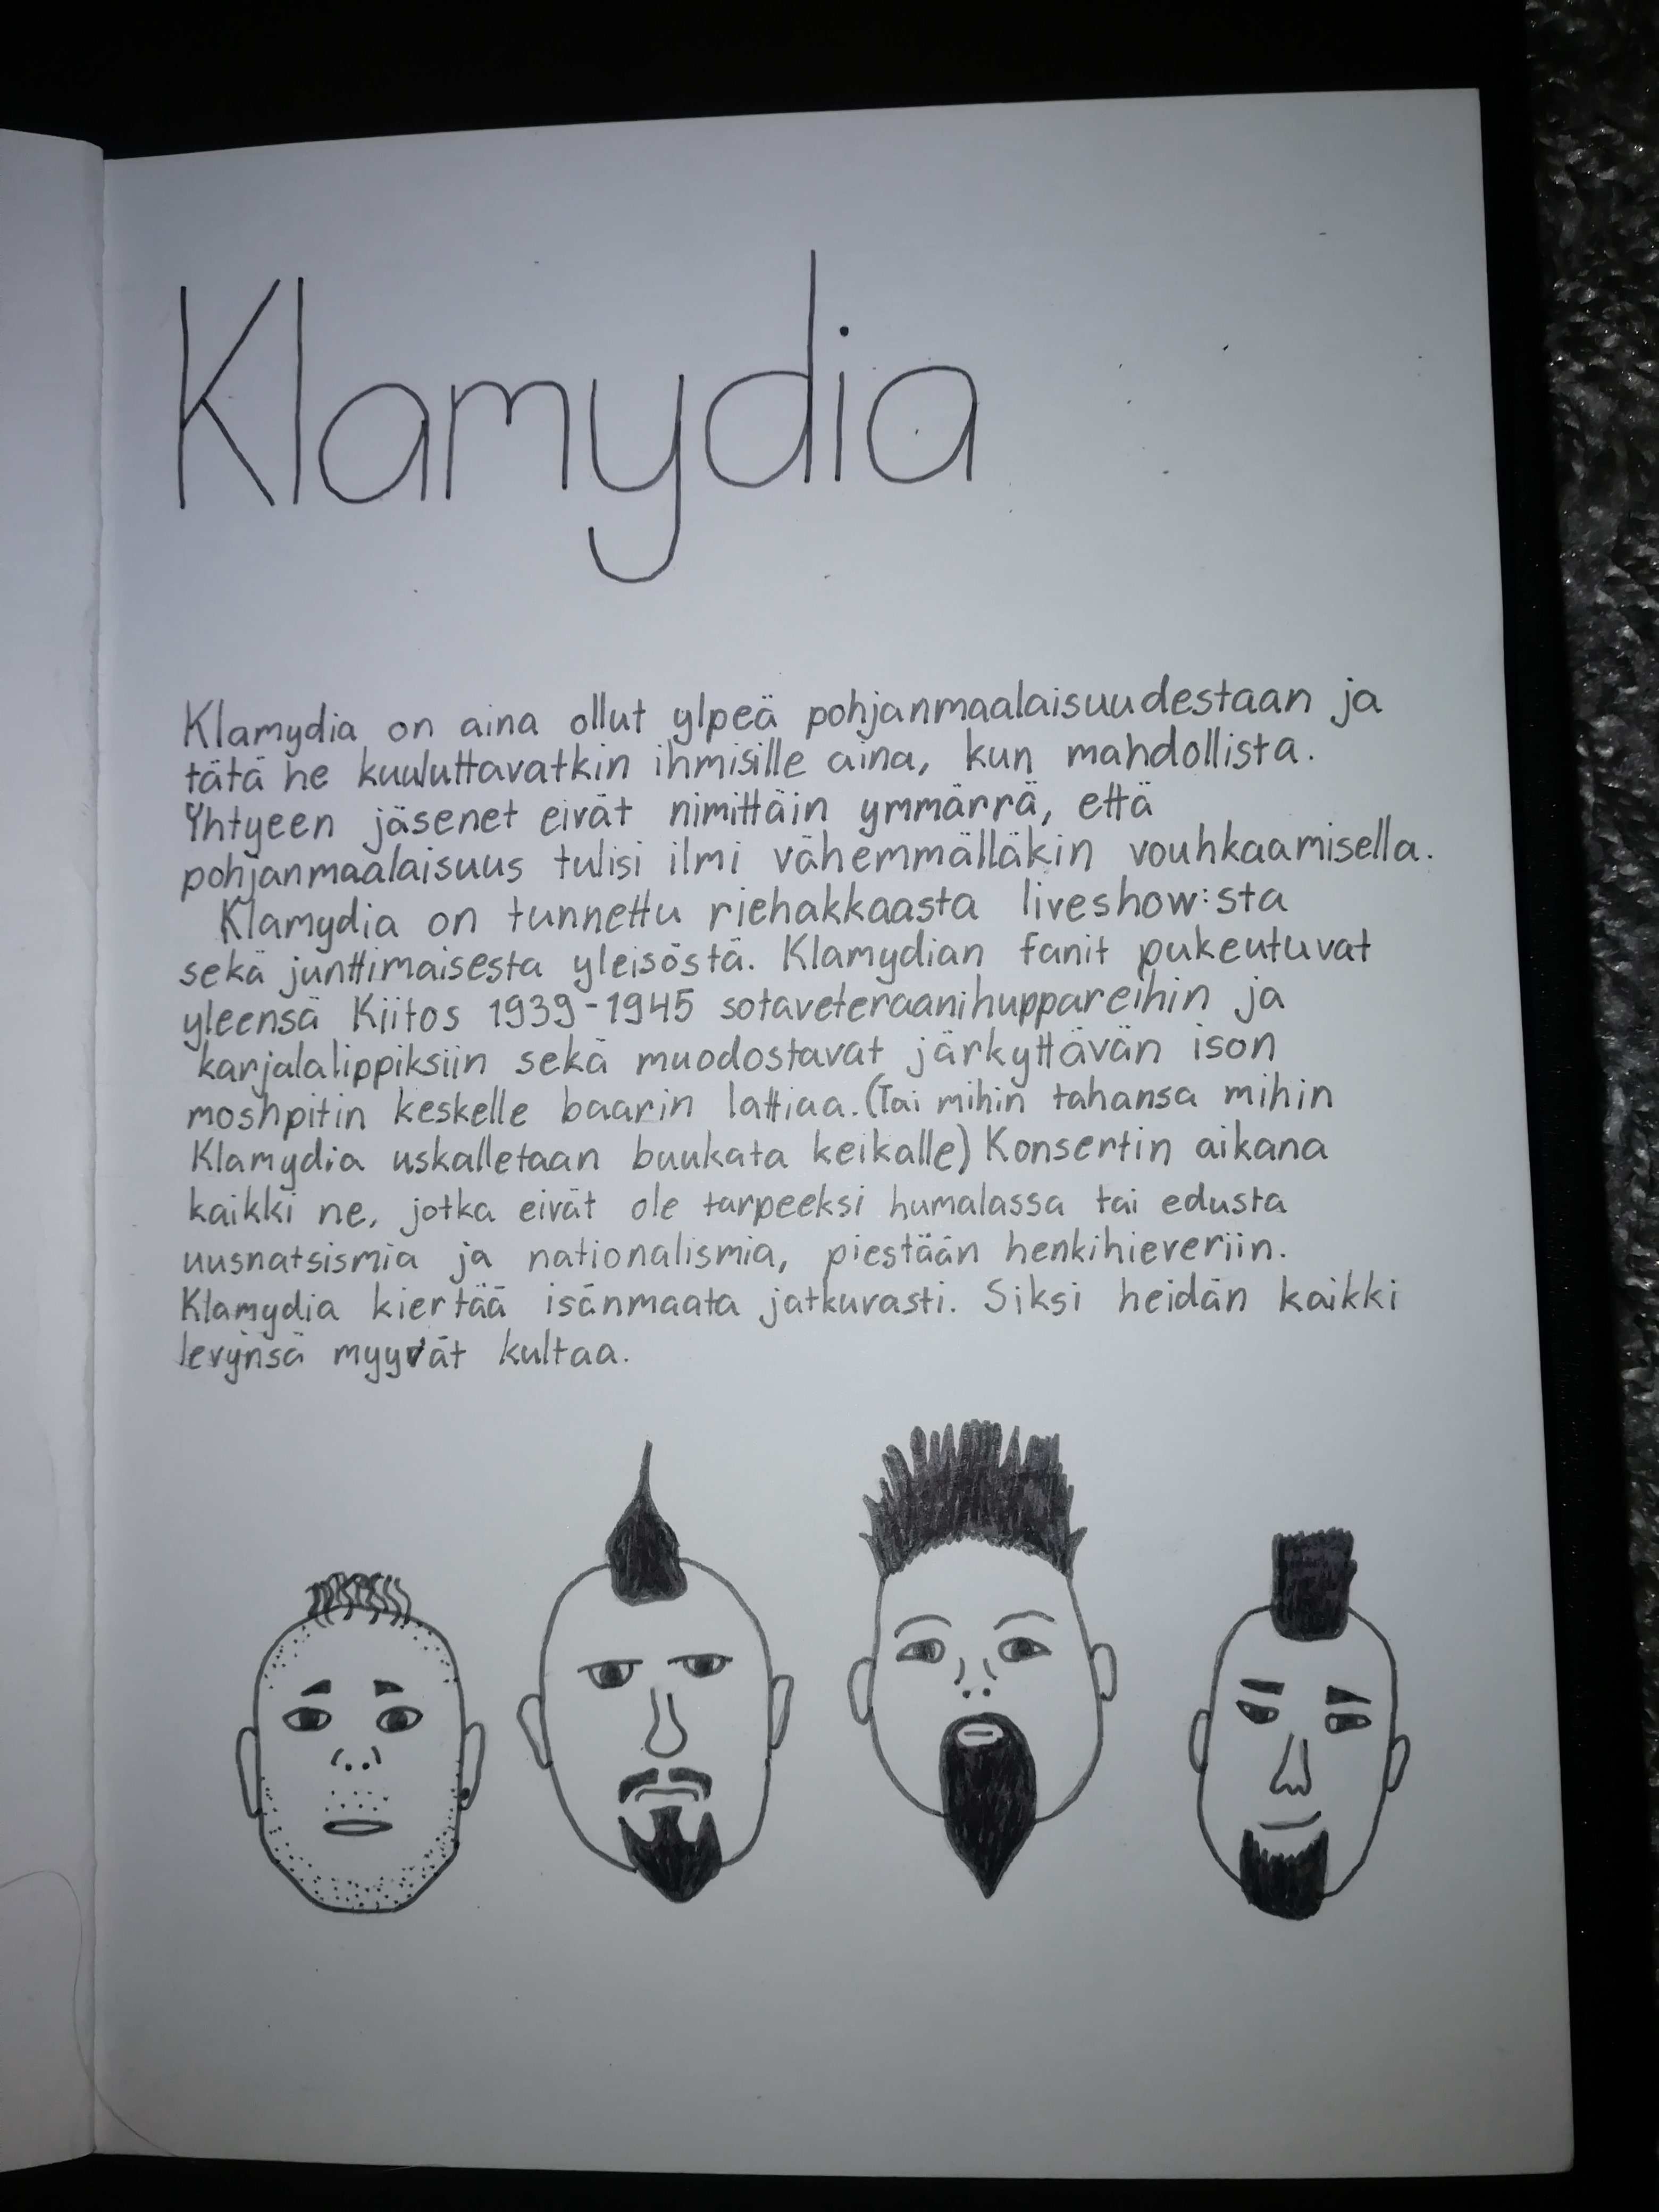 Klamydia
Klamydia on aina ollut ylpeä pohjanmaalaisuudestaan ja
tätä he kuuluttavatkin ihmisille aina, kun mahdollista.
Yhtyeen jäsenet eivät nimittäin ymmärrä, että
pohjanmaalaisuus tulisi ilmi vähemmälläkin vouhkaamisella.
Klamydia on tunnettu riehakkaasta liveshow:sta
sekä junttimaisesta yleisöstä. Klamydian fanit pukeutuvat
yleensä Kiitos 1939-1945 sotaveteraanihuppareihin ja
karjalalippiksiin sekä muodostavat järkyttävän ison
moshpitin keskelle baarin lattiaa. (Tai mihin tahansa mihin
Klamydia uskalletaan buukata keikalle) Konsertin aikana
kaikki ne, jotka eivät ole tarpeeksi humalassa tai edusta
uusnatsismia ja nationalismia, piestään henkihieveriin.
Klamydia kiertää isänmaata jatkuvasti. Siksi heidän kaikki
levynsä myyvät kultaa.